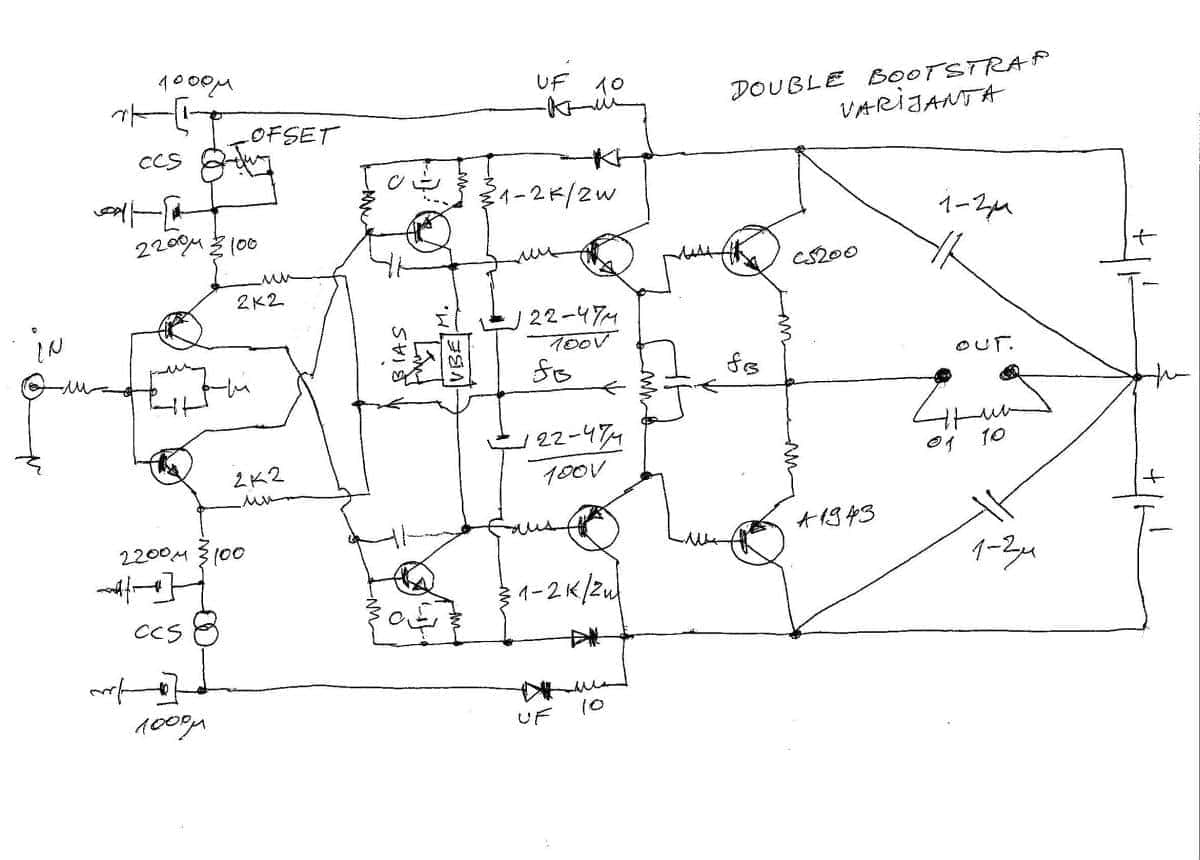 1000μ
UF 10
DOUBLE BOOTSTRAP
VARIJANTA
OFSET
CCS
C
1-2K/2W
1-2μ
+
2200μ
100
C5200
-
2K2
22-47μ
100V
BIAS
VBE M.
IN
fB
fB
OUT.
22-47μ
100V
01 10
2K2
+
A1943
-
2200μ
100
1-2μ
1-2K/2W
C
CCS
1000μ
UF 10